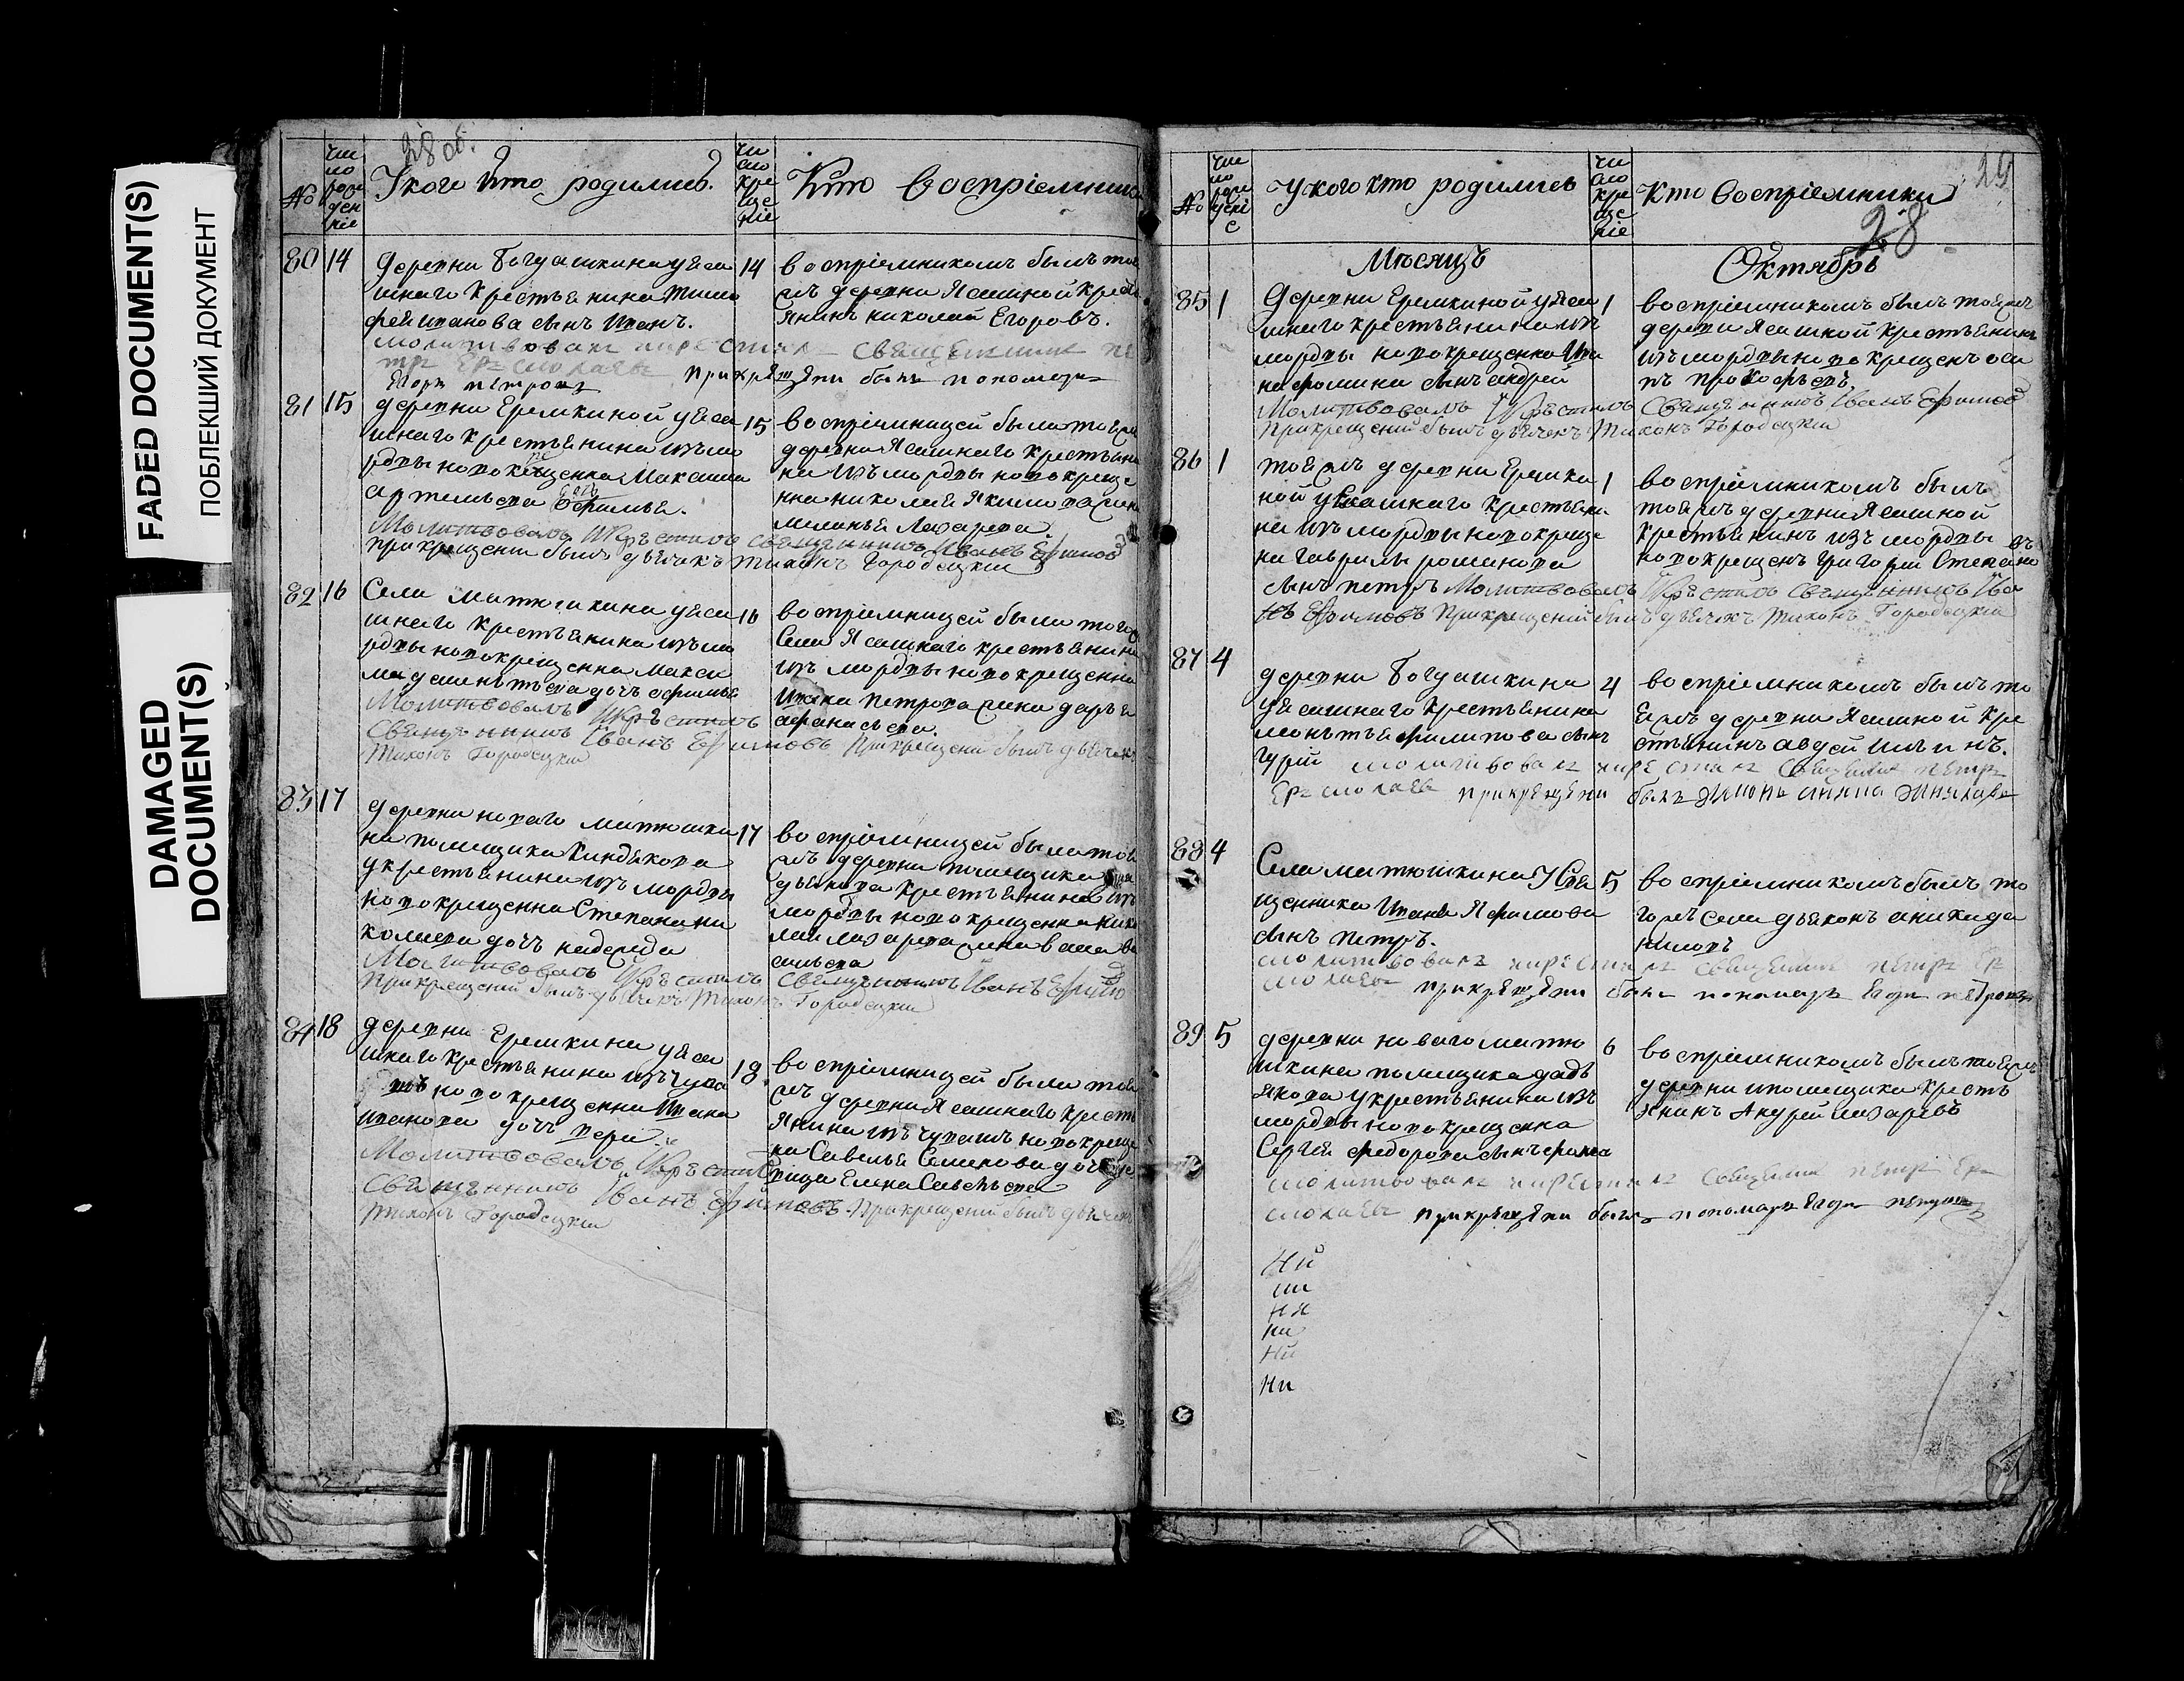 FADED DOCUMENT(S)
ПОБЛЕКШИЙ ДОКУМЕНТ
DAMAGED
DOCUMENT(S)
28 об.
№
чи
сло
рож
ден
ніе
У кого кто родились.
чи
сло
кре
ще
ніе
Кто воспріемники
80 14
деревни Богдашкина у яса
шнаго крестьянина Тимо
фея иванова сынъ Иванъ.
молитвовалъ и крестилъ священникъ пе
тръ Ермолаевъ при крещении былъ пономарь
Егоръ петровъ
14
воспріемникомъ былъ тоя
жъ деревни Ясашной крест
янинъ николай Егоровъ.
81 15
деревни Еремкиной у яса
шнаго крестьянина изъ мо
рдвы новокрещенна Максима
артемьева дочь Ефимья.
Молитвовалъ и крестилъ священникъ Иванъ Ефимов
при крещении былъ дьячекъ Тихонъ Городецкии
15
воспріемницей была тояжъ
деревни Ясашнаго крестьяни
на изъ мордвы новокреще
нна николая Якимова жена
меланья Лазарева.
82 16
Села матюшкина у яса
шнаго крестьянина изъ мо
рдвы новокрещенна Макси
ма дементьева дочь ефимья
Молитвовалъ и крестилъ
Священникъ Иванъ Ефимовъ При крещении былъ дьячекъ
Тихонъ Городецкии
16
воспріемницей была тогожъ
Села Ясашнаго крестьянина
изъ мордвы новокрещенна
Ивана Петрова жена дарья
афанасьева.
83 17
деревни новаго матюшки
на помещика Киндякова
у крестьянина изъ мордвы
новокрещенна Степана ни
колаева дочь надежда
Молитвовалъ и крестилъ Священникъ Иванъ Ефимо
При крещении былъ дьячекъ Тихонъ Городецкии
17
воспріемницей была тоя
жъ деревни помещика Кин
дякова крестьянина изъ
мордвы новокрещенна нико
лая лазарева жена васа ва
сильева
84 18
деревни Еремкина у яса
шнаго крестьянина изъ чува
шъ новокрещенна Ивана
иванова дочь вера.
Молитвовалъ и крестилъ
Священникъ Иванъ Ефимовъ. При крещении былъ дьячекъ
Тихонъ Городецкии
18
воспріемницей была тоя
жъ деревни Ясашнаго крест
янина изъ чувашъ новокреще
на Савелья Семенова дочь де
вица Елена Савельева
29
28
№
чи
сло
рож
дені
е
у кого кто родились
чи
сло
кре
ще
ніе
Кто воспріемники
Мѣсяцъ
Октябрь
85 1
Деревни Еремкиной у яса
шнаго крестьянина изъ
мордвы новокрещенна Ива
на фомина сынъ андрей
Молитвовалъ и крестилъ Священникъ Иванъ Ефимов
При крещении былъ дьячекъ Тихонъ Городецкии
1
воспріемникомъ былъ тояжъ
деревни Ясашной крестьянинъ
изъ мордвы новокрещенъ оси
пъ прокофьевъ.
86 1
тояжъ деревни Еремки
ной у ясашнаго крестьяни
на изъ мордвы новокреще
на гаврилы романова
сынъ петръ Молитвовалъ и крестилъ Священникъ Ива
нъ Ефимовъ При крещении былъ дьячекъ Тихонъ Городецкии
1
воспріемникомъ былъ
тояжъ деревни Ясашной
крестьянинъ изъ мордвы
новокрещенъ григорій Степано
въ
87 4
деревни Богдашкина
у ясашнаго крестьянина
леонтья филипова сынъ
гурій молитвовалъ и крестилъ Священикъ петръ
Ермолаевъ при крещении былъ
4
воспріемникомъ былъ то
яжъ деревни Ясашной кре
стьянинъ авдей ильинъ.
88 4
Села матюшкина У Свя
щенника Ивана Яфимова
сынъ петръ.
молитвовалъ и крестилъ священикъ петръ Ер
молаевъ при крещении былъ пономарь Егоръ петровъ
5
воспріемникомъ былъ то
гожъ села дьяконъ аникида
ниловъ
89 5
деревни новаго матю
шкина помещика дадь
якова у крестьянина изъ
мордвы новокрещенна
Сергея федорова сынъ фома
молитвовалъ и крестилъ священикъ петръ Ер
молаевъ при крещении былъ пономарь Егоръ петровъ
6
воспріемникомъ былъ тояжъ
деревни и помещика кресть
янинъ Андрей лазаревъ
Ни
ни
ни
ни
ни
ни